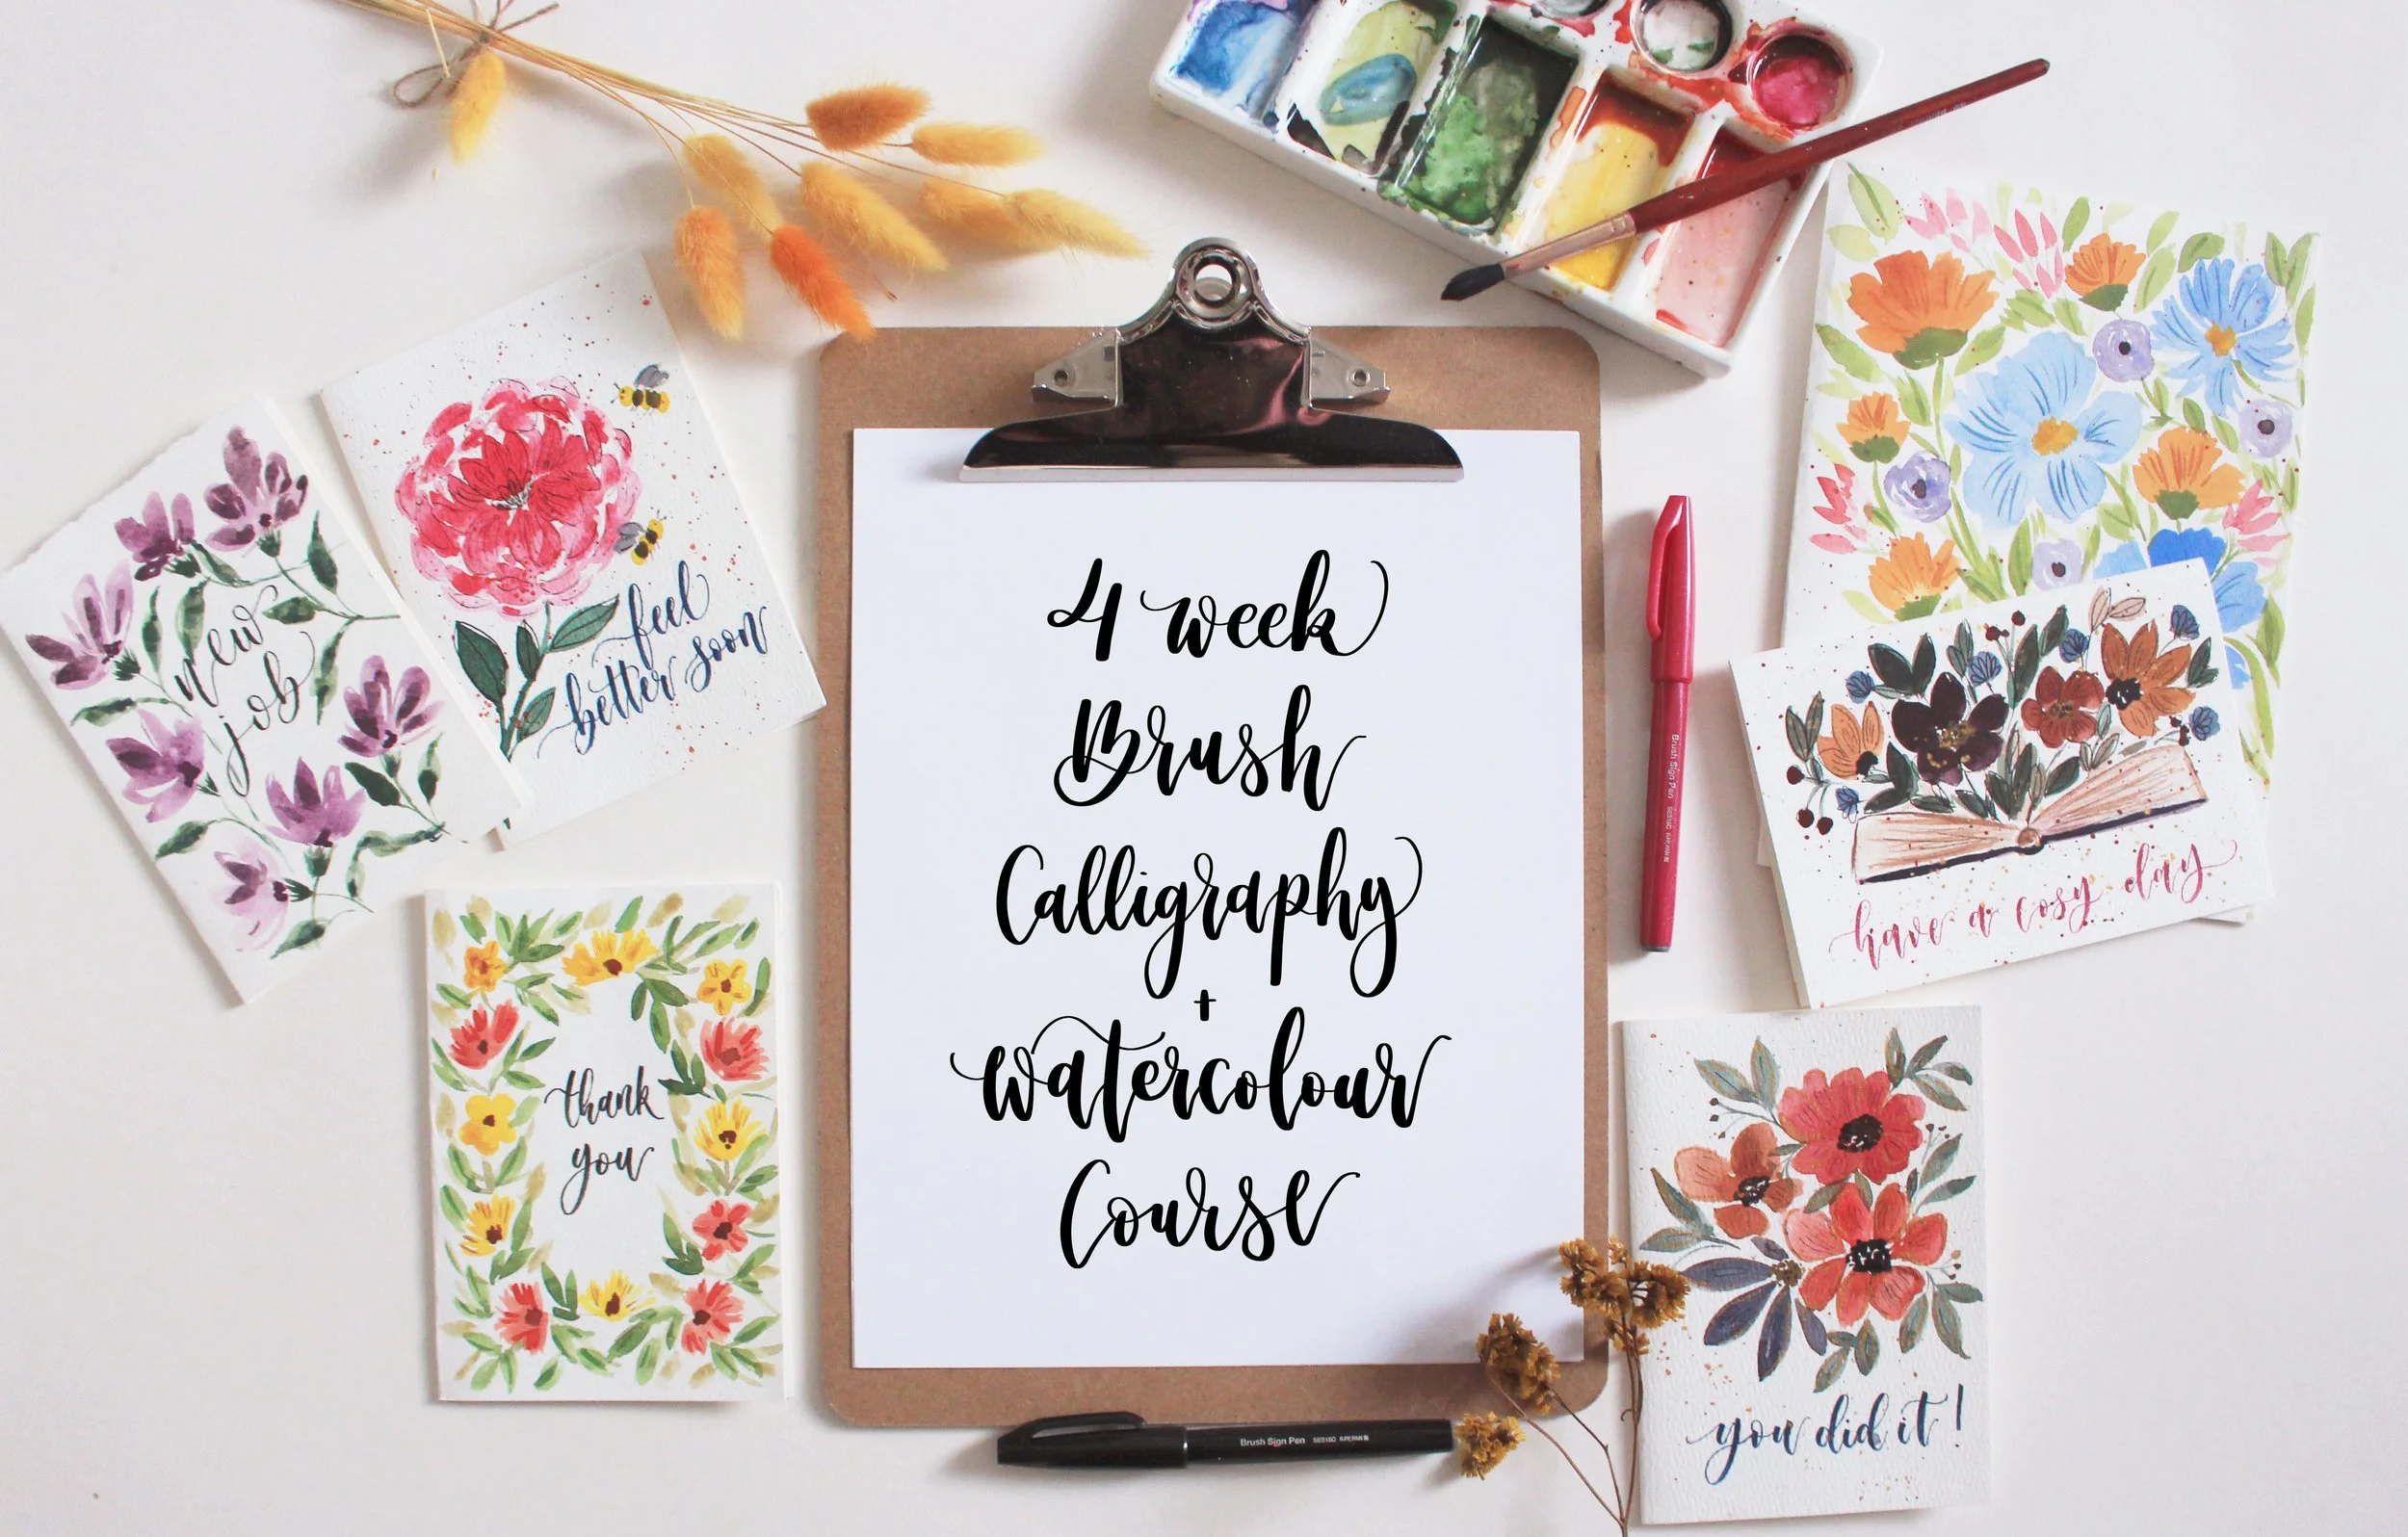 4 week
Brush
Calligraphy
+
watercolour
Course
new
job
feel
better soon
thank
you
Brush Sign Pen
have a cosy day
you did it!
Brush Sign Pen SES15C